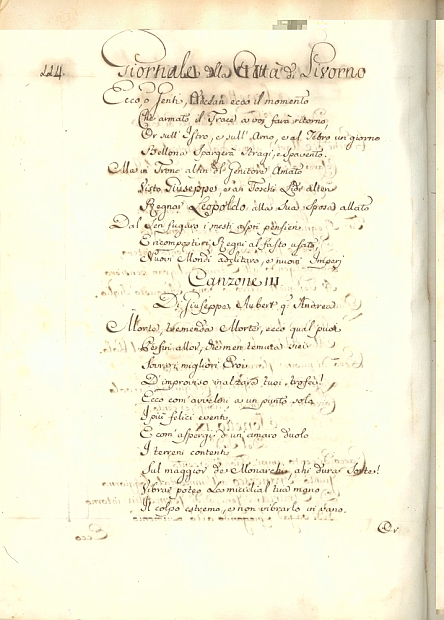 224.
Giornale della Città di Livorno
Ecco, o Genti, ecco il momento
Che armato il Trace a voi farà ritorno
Or sull' Istro, e sull' Arno, e al Tebro un giorno
Bellona Spargerà Stragi, e Spavento.
Ma in Trono alfin il Genitore Amato
Visto Giuseppe, e ai Toschi
Regnar Leopoldo alla Sua Sposa allato
Dal Sen fugaro i mesti aspri pensieri
E ricomposti i Regni al fasto usato
Nuovi Mondi additaro, e nuovi Imperj
Canzone III
Di Giuseppe Aubert q.m Andrea
Morte, tremenda Morte, ecco qual puoi
Persin allor, che men temuta sei
Sovra i migliori Eroi
D'improvviso inalzare i tuoi trofei!
Ecco com' avveleni a un punto solo
I più felici eventi
E com' aspergi d'un amaro duolo
I terreni contenti
Sul maggior de Monarchi, ahi dura Sorte!
Vibrar poteo la micidial tua mano
Il colpo estremo, e non vibrarlo in vano.
Or